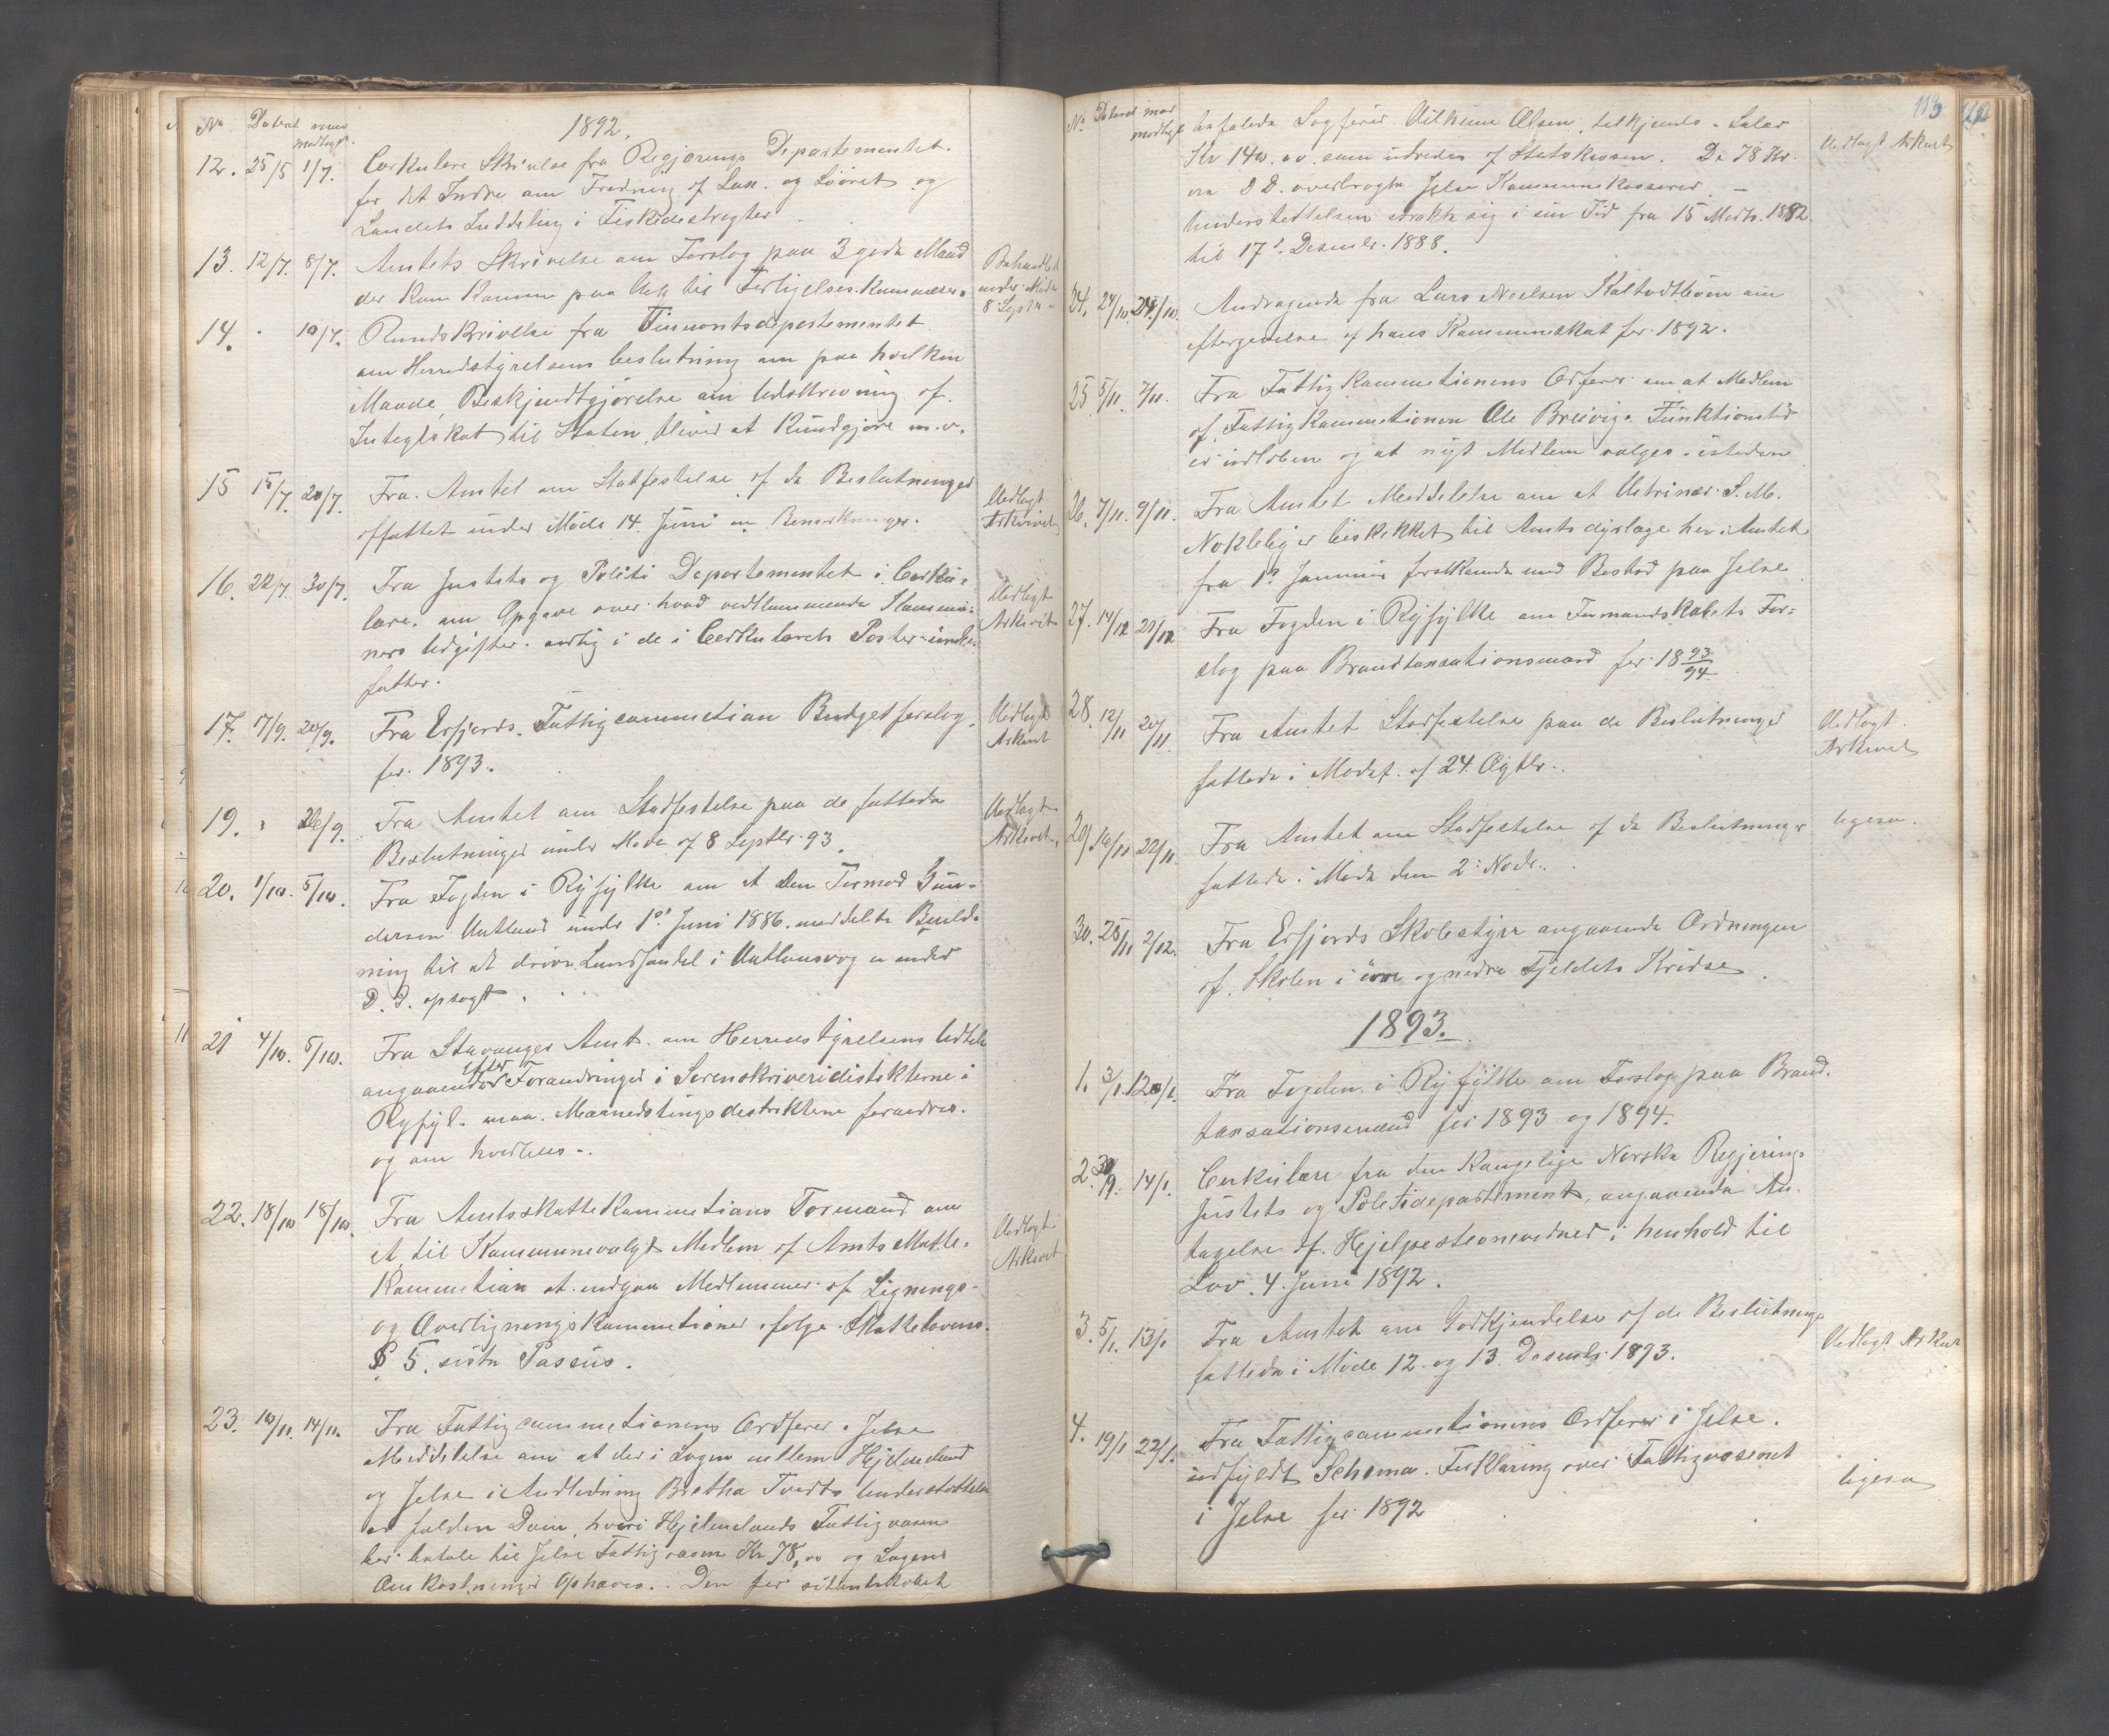 No Datert mod
modtagt.
1892.
12. 25/5 1/7. Cerkulære Skrivelse fra Regjerings Departementet.
for det Indre om Fredning af Lax. og Søøret og
Landets Inddeling i Fiskedestrigter.
13. 12/7. 8/7. Amtets Skrivelse om Forslag paa 3 gode Mænd Behandlet
der kan komme paa Valg til Forligelses-Kommisær. under Møde
8 Septr
14. " 10/7. Rundskrivelse fra Finnantsdepartementet
om Herredstyrelsens beslutning om paa hvilken
Maade, Beskjendtgjørelse om Udskrivning af.
Integtskat til Staten, bliver at Kundgjøre m.v.
15 15/7. 20/7. Fra Amtet om Stadfestelse af de Beslutninger Vedlagt
affattet under Møde 14. Juni en Bemerkninger. Arkivet
16. 22/7. 30/7. Fra Justits og Politi Departementet i Cerku- Vedlagt
lære. om Opgave over hvad vedkommende Kommu- Arkivet
ners Udgifter. aarlig i de i Cerkulærets Poster
fatter.
17. 17/9. 20/9. Fra Erfjords Fattigcommetion Budgetforslag. Vedlagt
for. 1893. Arkivet
19. " 26/9. Fra Amtet om Stadfestelse paa de fattede Vedlagt
Beslutninger under Møde af 8 Septbr 93. Arkivet.
20. 1/10. 5/10. Fra Fogden i Ryfylke om at den Tormod Gun-
dersen Vatland under 1ste Juni 1886. meddelte Bevild-
ning til at drive Landhandel i Vatlandsvog er under
D. D. opsagt.
21 4/10. 5/10. Fra Stavanger Amt. om Herredstyrelsens Udtal
efter
angaaende Forandringer i Sorenskriveridistrikterne i
Ryfyl. maa. Maanedstingsdestriktene forandres.
og om hvorledes -.
22. 18/10 18/10. Fra AmtsskatteKommetions Formand om
at til Kommunevalgt Medlem af AmtsSkatte- Vedlagt
Kommetion at. indgaa Medlemmer af Lignings- Arkivet
og OverligningsKommetioner. følge Skattelovens
§ 5. siste Passus.
23. 10/11. 14/11. Fra Fattigcommetionens Ordfører i Jelse
Meddelelse om at der i Sagen mellem Hjelmeland
og Jelse i Andledning Bertha Tvedts Understøttelse
er falden Dom, hvori Hjelmelands Fattigvæsen
bør betale til Jelse Fattigvæsen Kr 78,00 og Sagens
Omkostninger Ophæves. Den for

113
No Datert mod
modtagt
befalede Sagfører Vilhem Olsen, telkjendes. Salær Vedlagt Arkivet
Kr 140.00. som udredes af Statskassen. De 78 Kr.
er D D. overbragte Jelse Kommunekasserer. -
Understøttelsen strakte sig i sin Tid fra 15 Marts. 1882.
til 17de Desembr. 1888.
24. 24/10. 24/10. Andragende fra Lars Neilsen Kaltvedtløvn om
eftergivelse af hans Kommuneskat for 1892.
25 5/11. 7/11. Fra FattigKommetionens Ordfører om at Medlem
af FattigKommetionen Ole Breivigs Funktionstid
er udløben og at nyt Medlem vælges isteden
26. 7/11. 9/11. Fra Amtet Meddelelse om at Veterinær S. M.
Nokleby er beskikket til Amtsdyrlæge her i Amtet
fra 1ste Januar med Bosted paa Jelse.
27. 14/12 20/12 Fra Fogden i Ryfylke om Formandskabets For-
slag paa Brandtaxationsmænd for 18 93/94
28. 12/11 20/11. Fra Amtet Stadfestelse paa de Beslutninger Vedlagt
fattede i Møde. af 24. Ogtbr. Arkivet
29. 16/11 22/11. Fra Amtet om Stadfestelse af de Beslutninger ligesaa.
fattede i Møde den 2: Novbr..
30. 28/11 2/12. Fra Erfjords Skolestyre angaaende Ordningen
af Skolen i øvre og nedre Fjeldets Kridse.
1893.
1. 3/1. 120/1. Fra Fogden i Ryfylke om Forslag paa Brand-
taxsationsmænd for 1893 og 1894.
2. 30/9. 14/1. Cerkulære fra den Kongelige Norske Regjerings
Justits og Politidepartement, angaaende An-
tagelse af. i henhold til
Lov. 4. Juni 1892.
3. 5/1. 13/1 Fra Amtet om Godkjendelse af de Beslutninger Vedlagt Arkiv
fattede i Møde 12. og 13. Desembr 1893.
4. 19/1 22/1. Fra Fattigcommetionens Ordfører i Jelse.
udfyldt Schema. Forklaring over Fattigvæsenet ligesaa
i Jelse for 1892